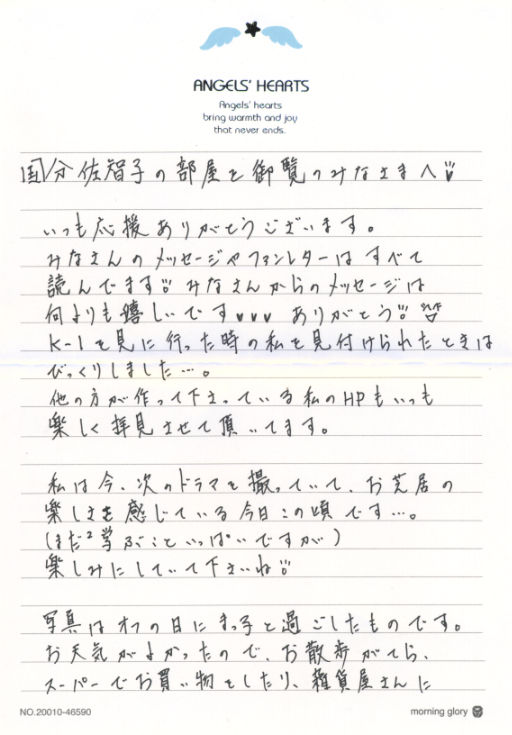 ANGELS' HEARTS
Angels' hearts
bring warmth and joy
that never ends.
国分佐智子の部屋を御覧のみなさまへ
いつも応援ありがとうございます。
みなさんのメッセージやファンレターはすべて
読んでます!! みなさんからのメッセージは
何よりも嬉しいです♥♥♥ ありがとう!!
K-1を見に行った時の私を見付けられたときは
びっくりしました…。
他の方が作って下さっている私のHPもいつも
楽しく拝見させて頂いてます。
私は今、次のドラマを撮っていて、お芝居の
楽しさを感じている今日この頃です…。
(まだ²学ぶこといっぱいですが)
楽しみにしていて下さいね!!
写真はオフの日にまっ子と過ごしたものです。
お天気がよかったので、お散歩がてら、
スーパーでお買い物をしたり、雑貨屋さんに
NO.20010-46590
morning glory